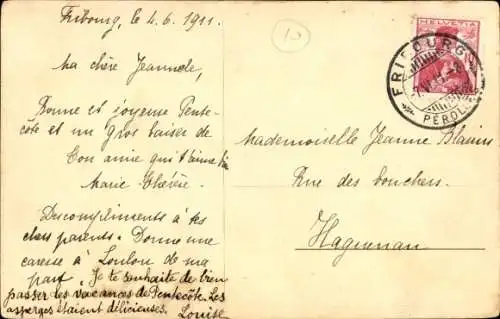 Fribourg, le 4.6.1911.
Ma chère Jeannele,
Bonne et joyeuse Pente-
côte et un gros baiser de
ton amie qui t'aime bien
Marie Thérèse.
Des compliments à tes
chers parents. Donne une
caresse à Loulou de ma
part. Je te souhaite de bien
passer les vacances de Pentecôte. Les
asperges étaient délicieuses. Louise
10
HELVETIA
FRIBOURG
PÉROL
Mademoiselle Jeanne
Rue des bouchers.
Haguenau